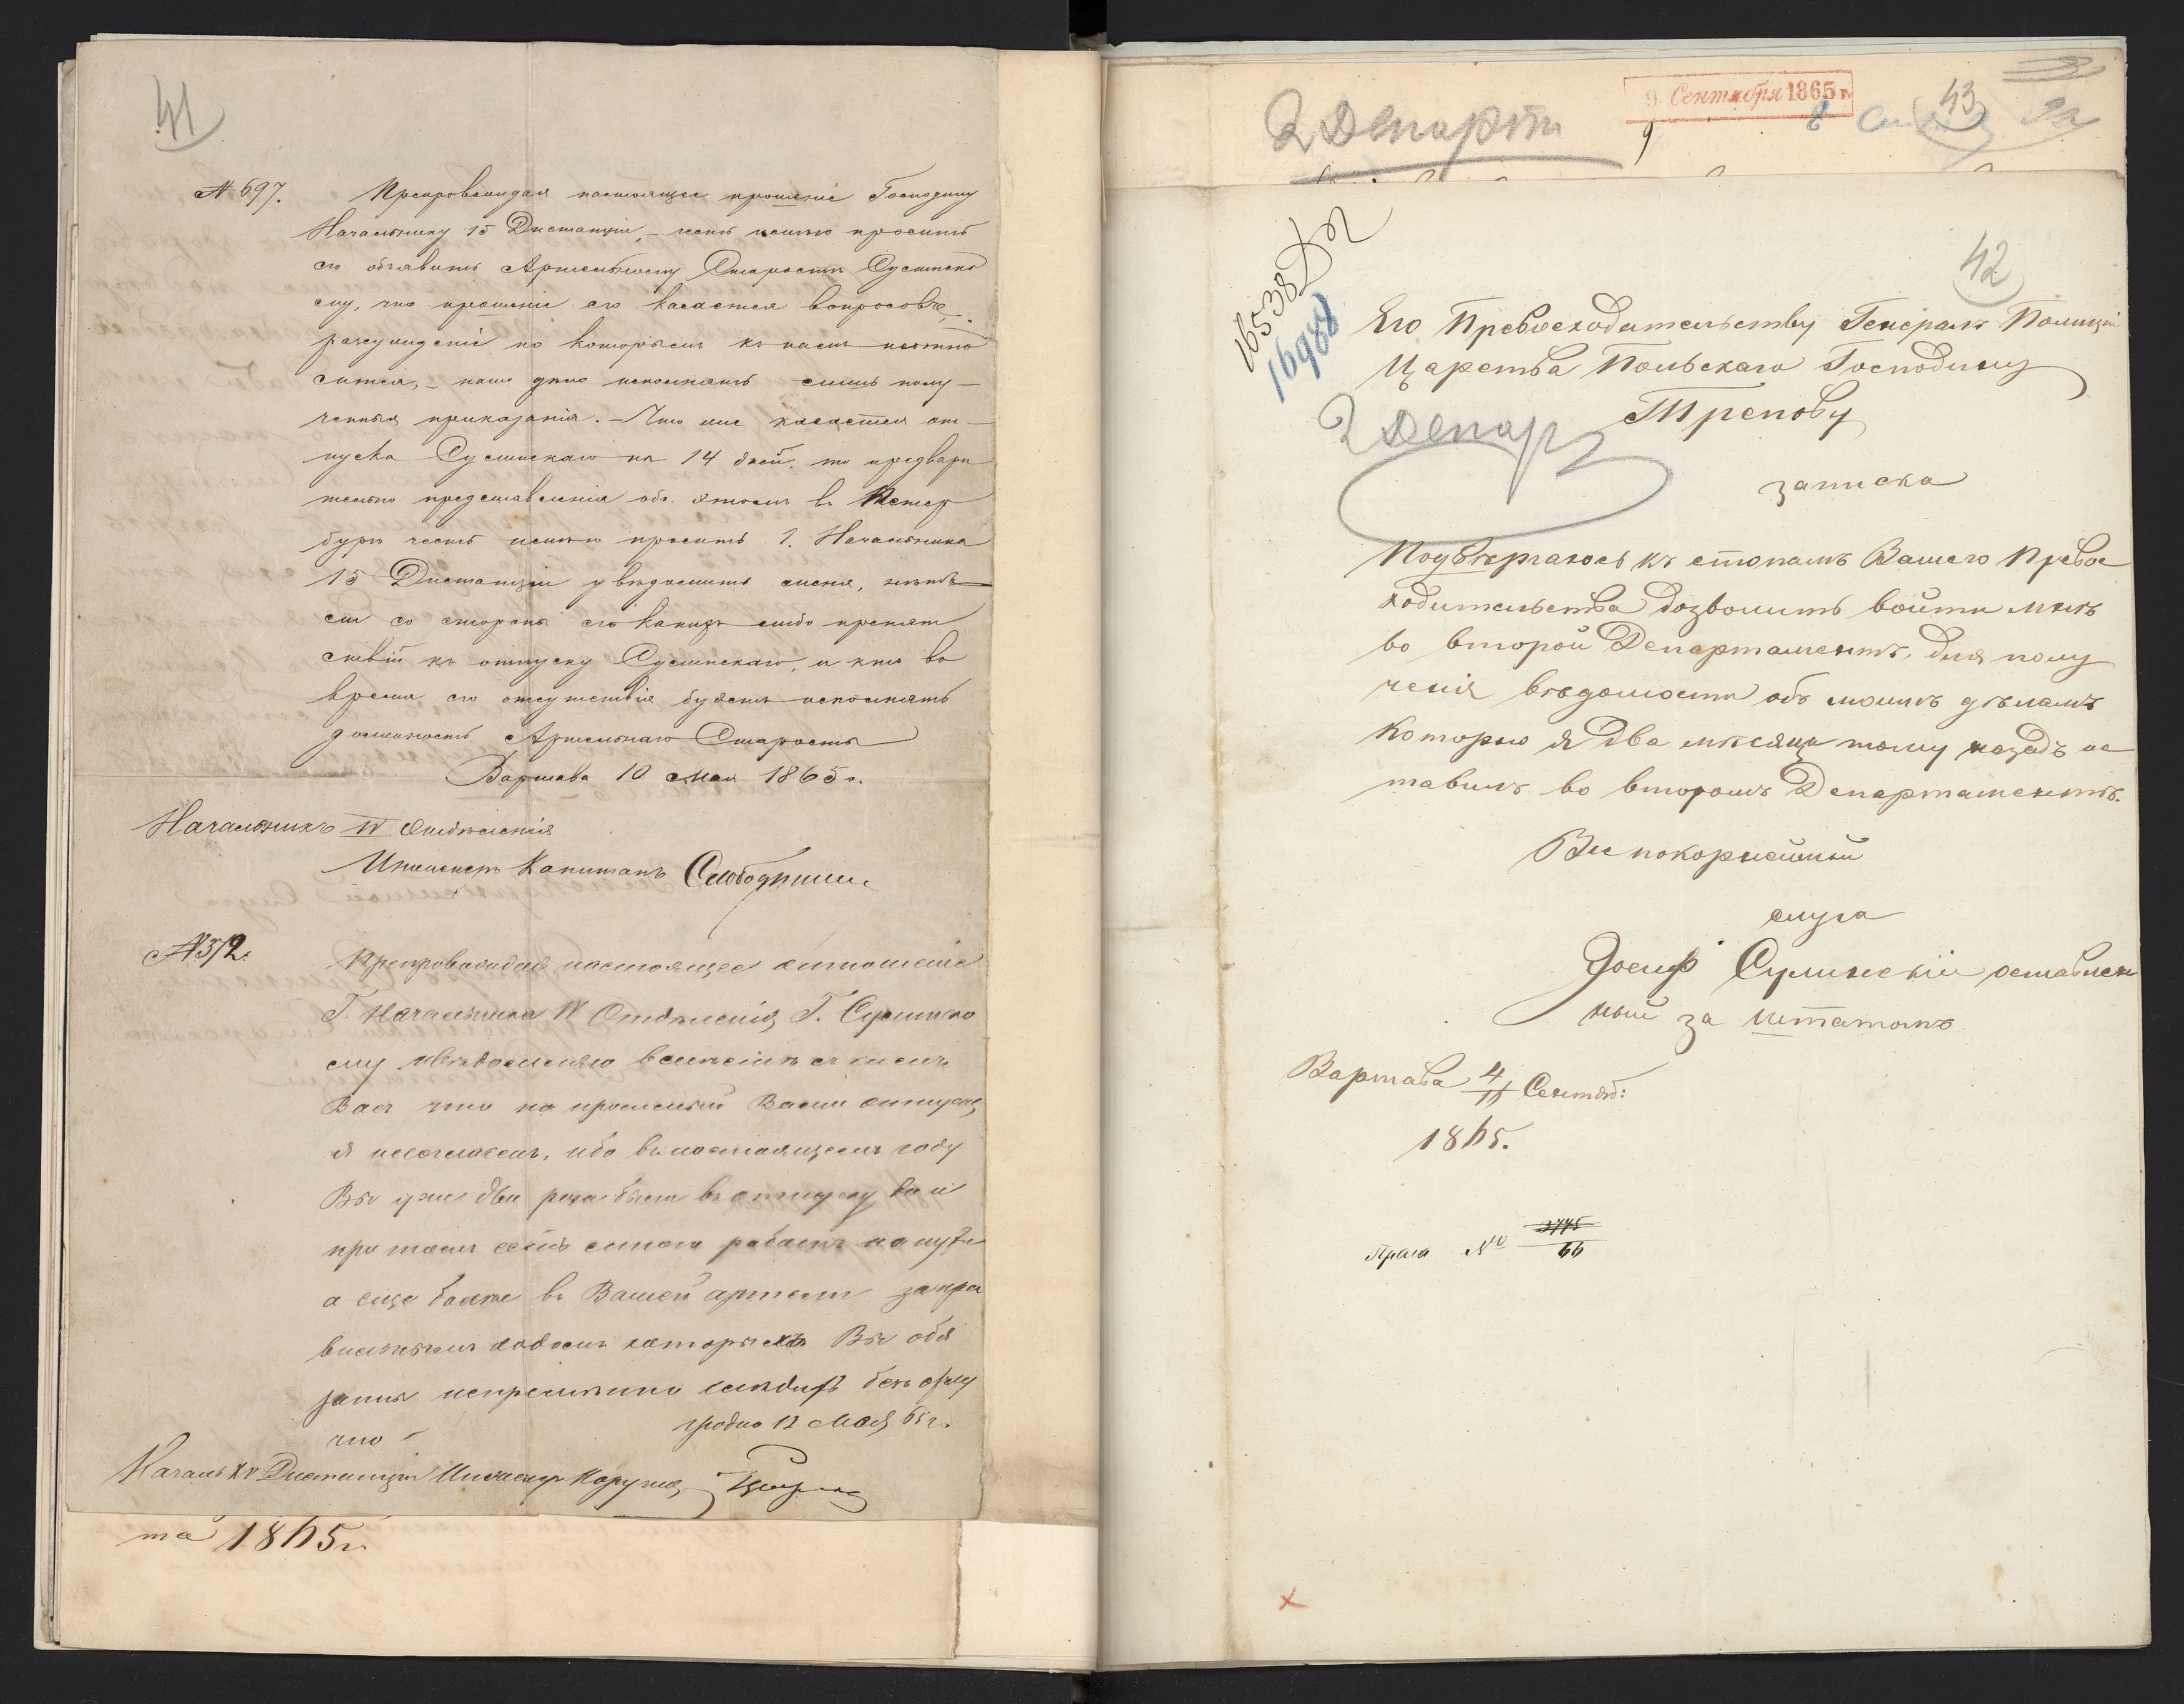 41
№ 697. Препровождая настоящее прошеніе Господину
Начальнику 15 Дистанціи, – честь имѣю просить
его объявить Артельному Старостѣ Сулинско
му, что прошеніе его касается вопросовъ,
разсужденіе по которымъ къ намъ неотно
сится, – наше дѣло исполнять лишь полу–
ченныя приказанія. – Что же касается от–
пуска Сулинскаго на 14 дней, то предвари
тельно представленія объ этомъ въ Петер
бургъ честь имѣю просить Г. Начальника
15 Дистанціи увѣдомить меня, нѣтъ–
ли со стороны его какихъ либо препят
ствій къ отпуску Сулинскаго, и кто во
время его отсутствія будетъ исполнять
должность Артельнаго Старосты
Варшава 10 Мая 1865 г.
Начальникъ IV Отдѣленія
Инженеръ Капитанъ
№ 372. Препровождая настоящее отношеніе
Г. Начальника IV Отдѣленія Г. Сулинско
му
Васъ что на просимый Вами отпускъ
я несогласенъ, ибо въ настоящемъ году
Вы уже два раза были въ отпуску да и
при томъ есть много работъ на пути
а еще болѣе въ Вашей артели за пра
вильнымъ ходомъ которыхъ Вы обя
заны непремѣнно слѣдить безъ отлу
чно
Гродно 12 Мая 65 г.
Началь XV Дистанціи Инженеръ Поручикъ
та 1865 г.
2 Департ
9 Сентября 1865 г.
43
9
8
42
16538
16988
Его Превосходительству Генералъ Полиціи
Царства Польскаго Господину
Трепову
2 Депар
записка
Подвергаюсь къ стопамъ Вашего Превос
ходительства дозволить войти мнѣ
во второй Департаментъ, для полу
ченія вѣдомости объ моимъ дѣламъ
которою я два мѣсяца тому назадъ ос
тавилъ во второмъ Департаментѣ.
Всепокорнейшій
слуга
Іосиф Сулинскій оставлен
ный за штатомъ
Варшава 4/16 Сентяб:
1865.
Прага № 3745/66